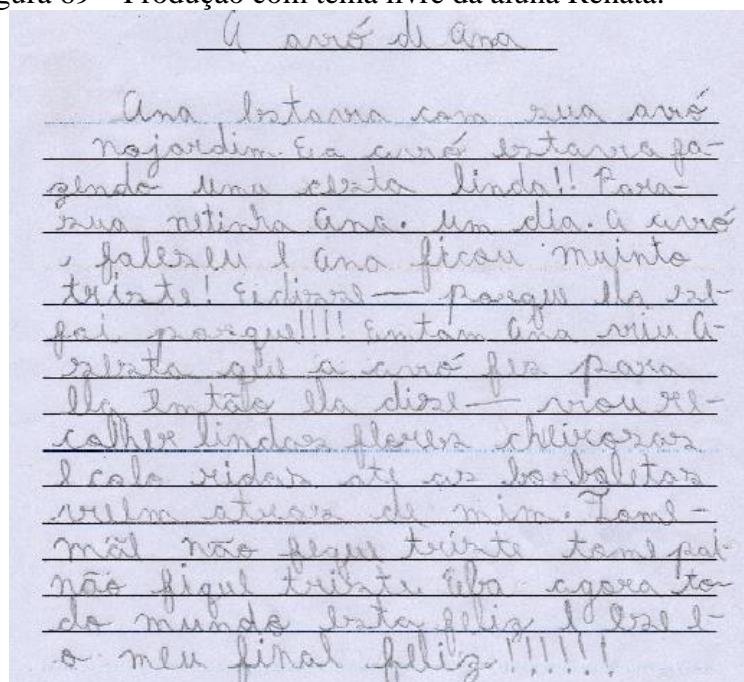 gura 69 – Produção com tema livre da aluna Renata.
A avó de Ana
Ana Estava com sua avó
nojardim. E a avó estava fa-
zendo uma cesta linda!! Para-
sua netinha Ana. Um dia. a avó
faleseu e Ana ficou muinto
triste! Eidisse— porque ela se
foi porque!!!! Emtam Ana viu A-
sesta que a avó fes para
Ela Emtão Ela dise— vou re-
colher lindas flores cheirosas
E colo ridas ate as borboletas
vem atras de mim. Tome-
mãe não fique triste tome pai
não fique triste Eba agora to-
do mundo Esta feliz E Ese E-
o meu final feliz!!!!!!